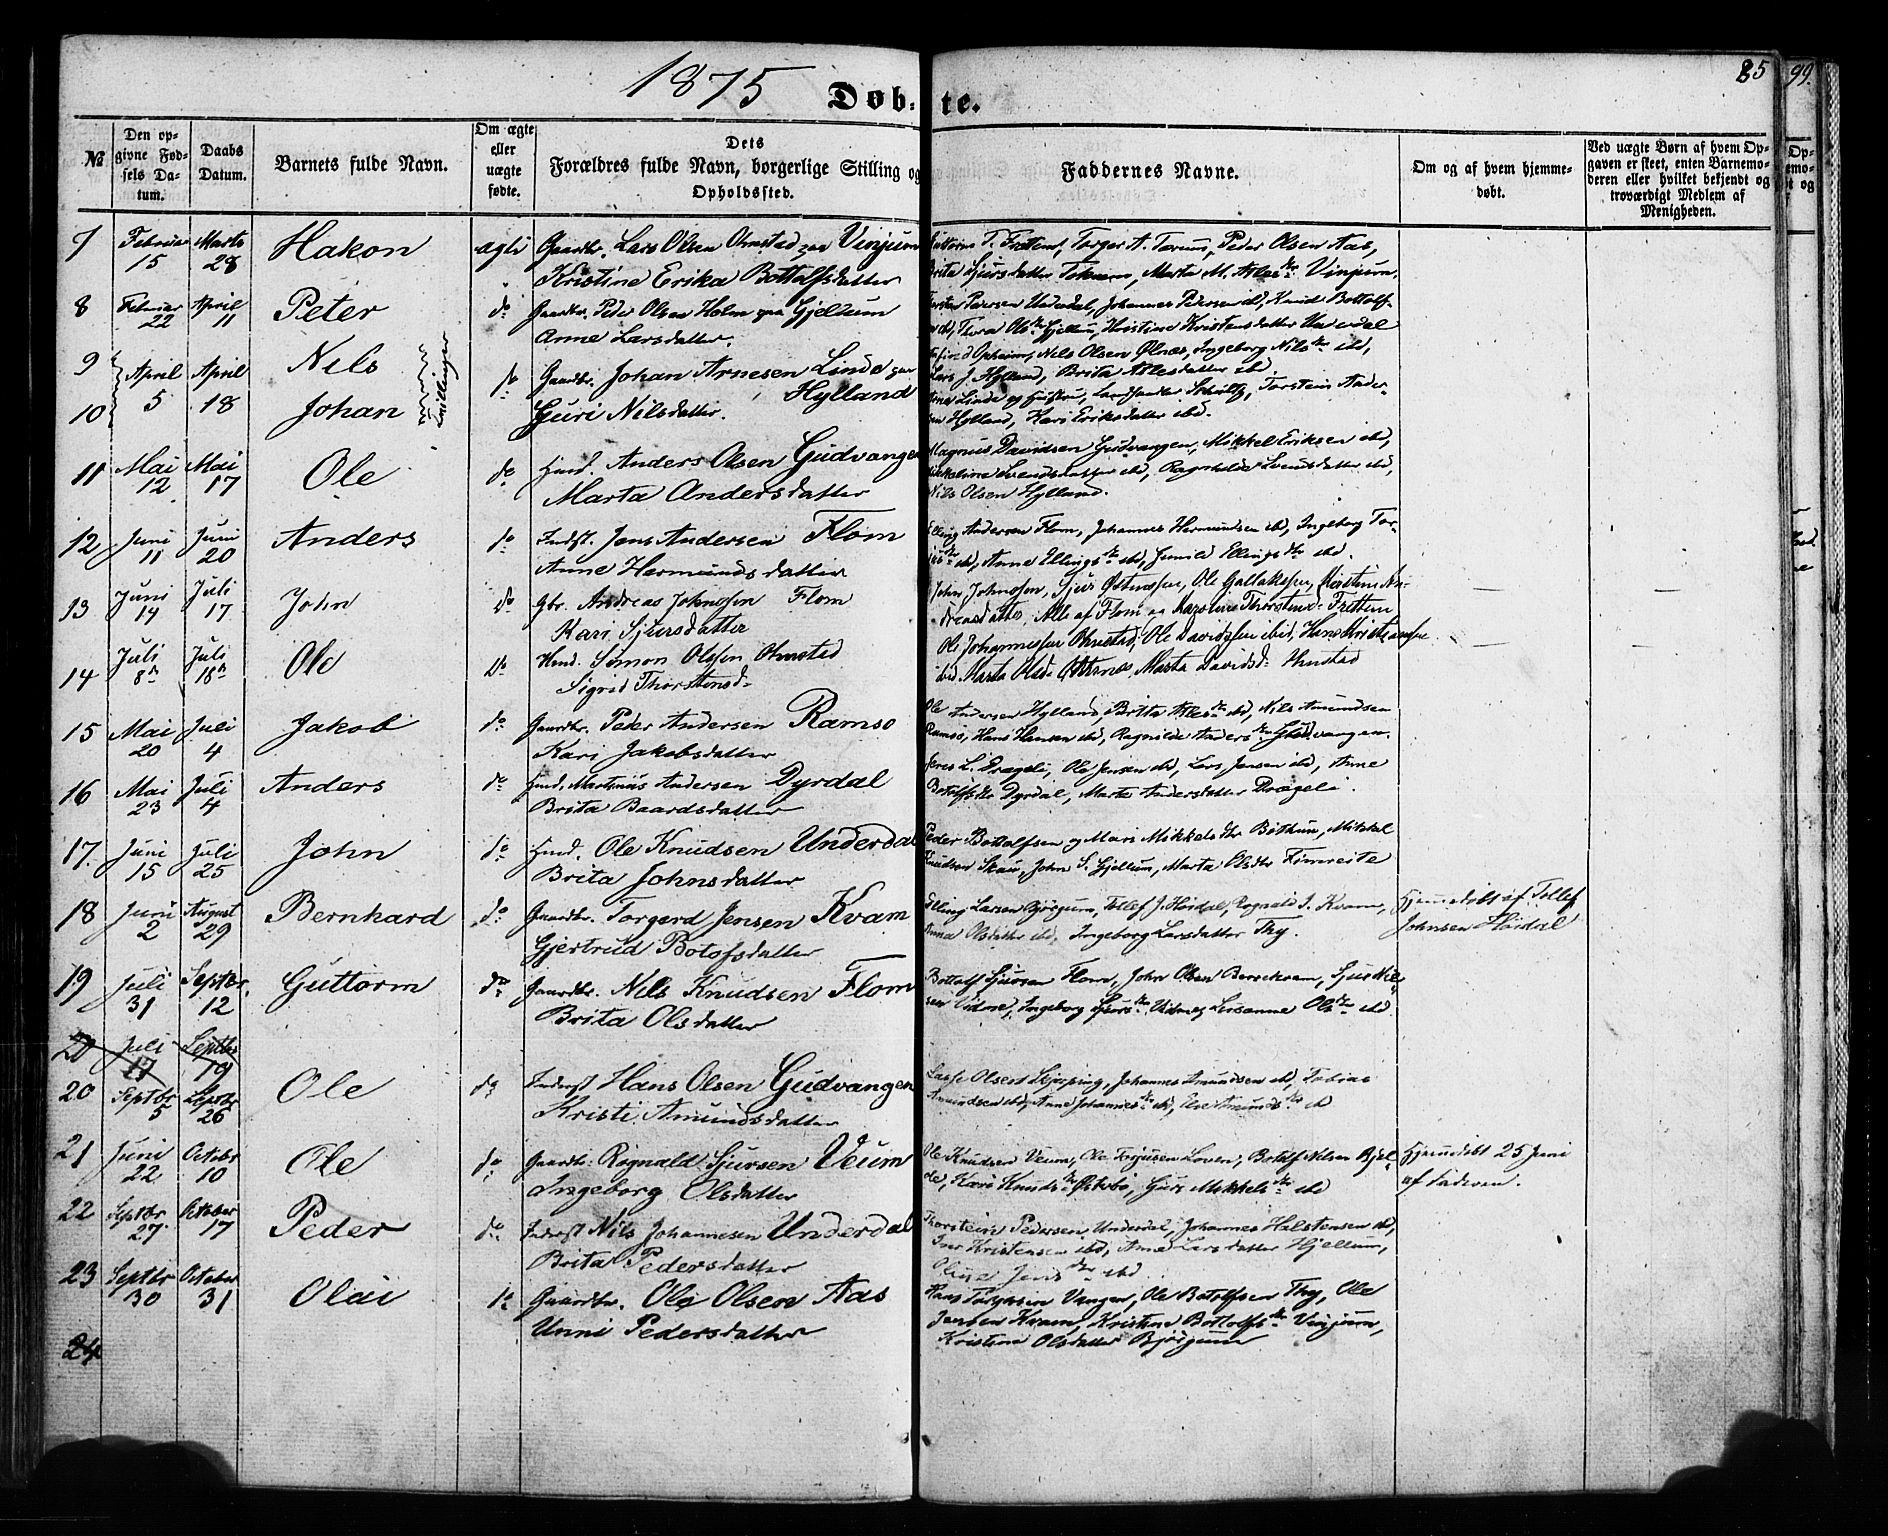 1875
Døb-te.
85
99.
№
Den opgivne Fødsels Datum.
Daabs Datum.
Barnets fulde Navn.
Om ægte eller uægte fødte.
Dets Forældres fulde Navn, borgerlige Stilling og Opholdssted.
Faddernes Navne.
Om og af hvem hjemmedøbt.
Ved uægte Børn af hvem Opgaven er skeet, enten Barnemoderen eller hvilket bekjendt og troværdigt Medlem af Menigheden.
7 Februar 15 Marts 28 Hakon ægte Gaardbr. Lars Olsen Ohnstad paa Vinjum
Kristine Erika Bottolfsdatter
T. Frettem, Torger A. Terum, Peder Olsen Aas,
Brita Sjursdatter Tokvam, Marta M. Vinjum
8 Februar 22 April 11 Peter do Gaardbr. Peder Olsen Holm paa Gjellum
Anne Larsdatter.
Torsten Pedersen Underdal, Johannes Pedersen ibd, Knud Bottolf-
Thora Olsdtr Gjellum, Kristine Kristensdatter Underdal
9 April 5 April 18 Nils do Gaardbr. Johan Arnesen Linde paa Hylland
10 Johan Tvillinger
Guri Nilsdatter.
Opheim, Nils Olsen Ølnæs, Ingeborg Nilsdtr ibd,
Lars J. Hylland, Brita Atlesdatter ibd
Linde og Hustru, Torstein Ander-
sen Hylland, Kari Eriksdatter ibd.
11 Mai 12 Mai 17 Ole do Hmd. Anders Olsen Gudvangen
Marta Andersdatter
Magnus Davidsen Gudvangen, Mikkel Eriksen ibd,
Svendsdatter ibd, Ragnhilda Svendsdatter ibd,
Nils Olsen Hylland.
12 Juni 11 Juni 20 Anders do Inderst. Jens Andersen Flom
Anne Hermundsdatter
Elling Andersen Flom, Johannes Hermundsen ibd, Ingeborg Tor-
ibd, Anne Ellingsdtr ibd, Gunild Ellingsdtr ibd.
13 Juni 14 Juli 17 John do Gbr. Andreas Johnsen Flom
Kari Sjursdatter
John Johnsen, Sjur Østensen, Ole Gullaksen, Kirstine An-
dreasdatter, Alle af Flom, og Karoline Thorstensd. Frettem
14 Juli 8de Juli 18de Ole do Hmd. Simon Olsen Ohnstad
Sigrid Thorstensd.
Ole Johannessen Ohnstad, Ole Davidsen ibid, Hans Kristiansen
ibid, Marta Olsd. Otternes, Marta Davidsd. Ohnstad
15 Mai 20 Juli 4 Jakob do Gaardbr. Peder Andersen Ramsø
Kari Jakobsdatter
Ole Andersen Hylland, Britta Atlesdtr ibd, Nils Amundsen
Ramsø, Hans Hansen ibd, Ragnilde Andersdtr Gudvangen.
16 Mai 23 Juli 4 Anders do Hmd. Martinus Andersen Dyrdal
Brita Baardsdatter
Jens L. Drægeli, Ole Jensen ibd, Lars Jensen ibd, Anne
Botolfsdtr Dyrdal, Marta Andersdatter Drægeli.
17. Juni 15 Juli 25 John do Hmd. Ole Knudsen Underdal
Brita Johnsdatter
Peder Bottolfsen og Mari Mikkelsdtr Bøthun, Mikkel
Knudsen Skau, John S. Gjellum, Marta Olsdtr Fimreite
18 Juni 2 August 29 Bernhard do Gaardbr. Torgerd Jensen Kvam
Gjertrud Botofsdatter
Elling Larsen Bjørgum, Tollef J. Høidal, Rognald I. Kvam,
Anna Olsdatter ibd, Ingeborg Larsdatter Thy.
Hjemmedøbt af Tollef Johnsen Høidal
19 Juli 31 Septbr. 12 Guttorm do Gaardbr. Nils Knudsen Flom
Brita Olsdatter
Bottolf Sjursen Flom, John Olsen Berrekvam, Sjur Nil-
sen Vidme, Ingeborg Sjursdtr Vidme, Olsdtr ibd
20 Juli 17 Septbr 19
20 Septbr 5 Septbr 26 Ole do Inderst Hans Olsen Gudvangen
Kristi Amundsdatter
Lasse Olsen Skjerping, Johannes Amundsen ibd, Tobias
Amundsen ibd, Anne Johannesdtr ibd, Else Amundsdtr ibd
21 Juni 22 October 10 Ole do Gaardbr. Rognald Sjursen Veum
Ingeborg Olsdatter
Ole Knudsen Veum, Ole Torjusen Loven, Botolf Nilsen Bjel-
de, Kari Knudsdtr Østerbø, Guri Mikkelsdtr ibd
Hjemmedøbt 25 Juni af Faderen.
22 Septbr 27 October 17 Peder do Inderst Nils Johannesen Underdal
Brita Pedersdatter
Thorstein Pedersen Underdal, Johannes Halstensen ibd,
Iver Kristensen ibd, Anne Larsdatter Hjellum,
Oline Jensdtr ibd
23 Septbr 30 October 31 Olai do Gaardbr. Ole Olsen Aas
Unni Pedersdatter
Hans Torgersen Vangen, Ole Botolfsen Thy, Ole
Jensen Kvam, Kristine Bottolfsdtr Vinjum,
Kristine Olsdatter Bjørgum
24